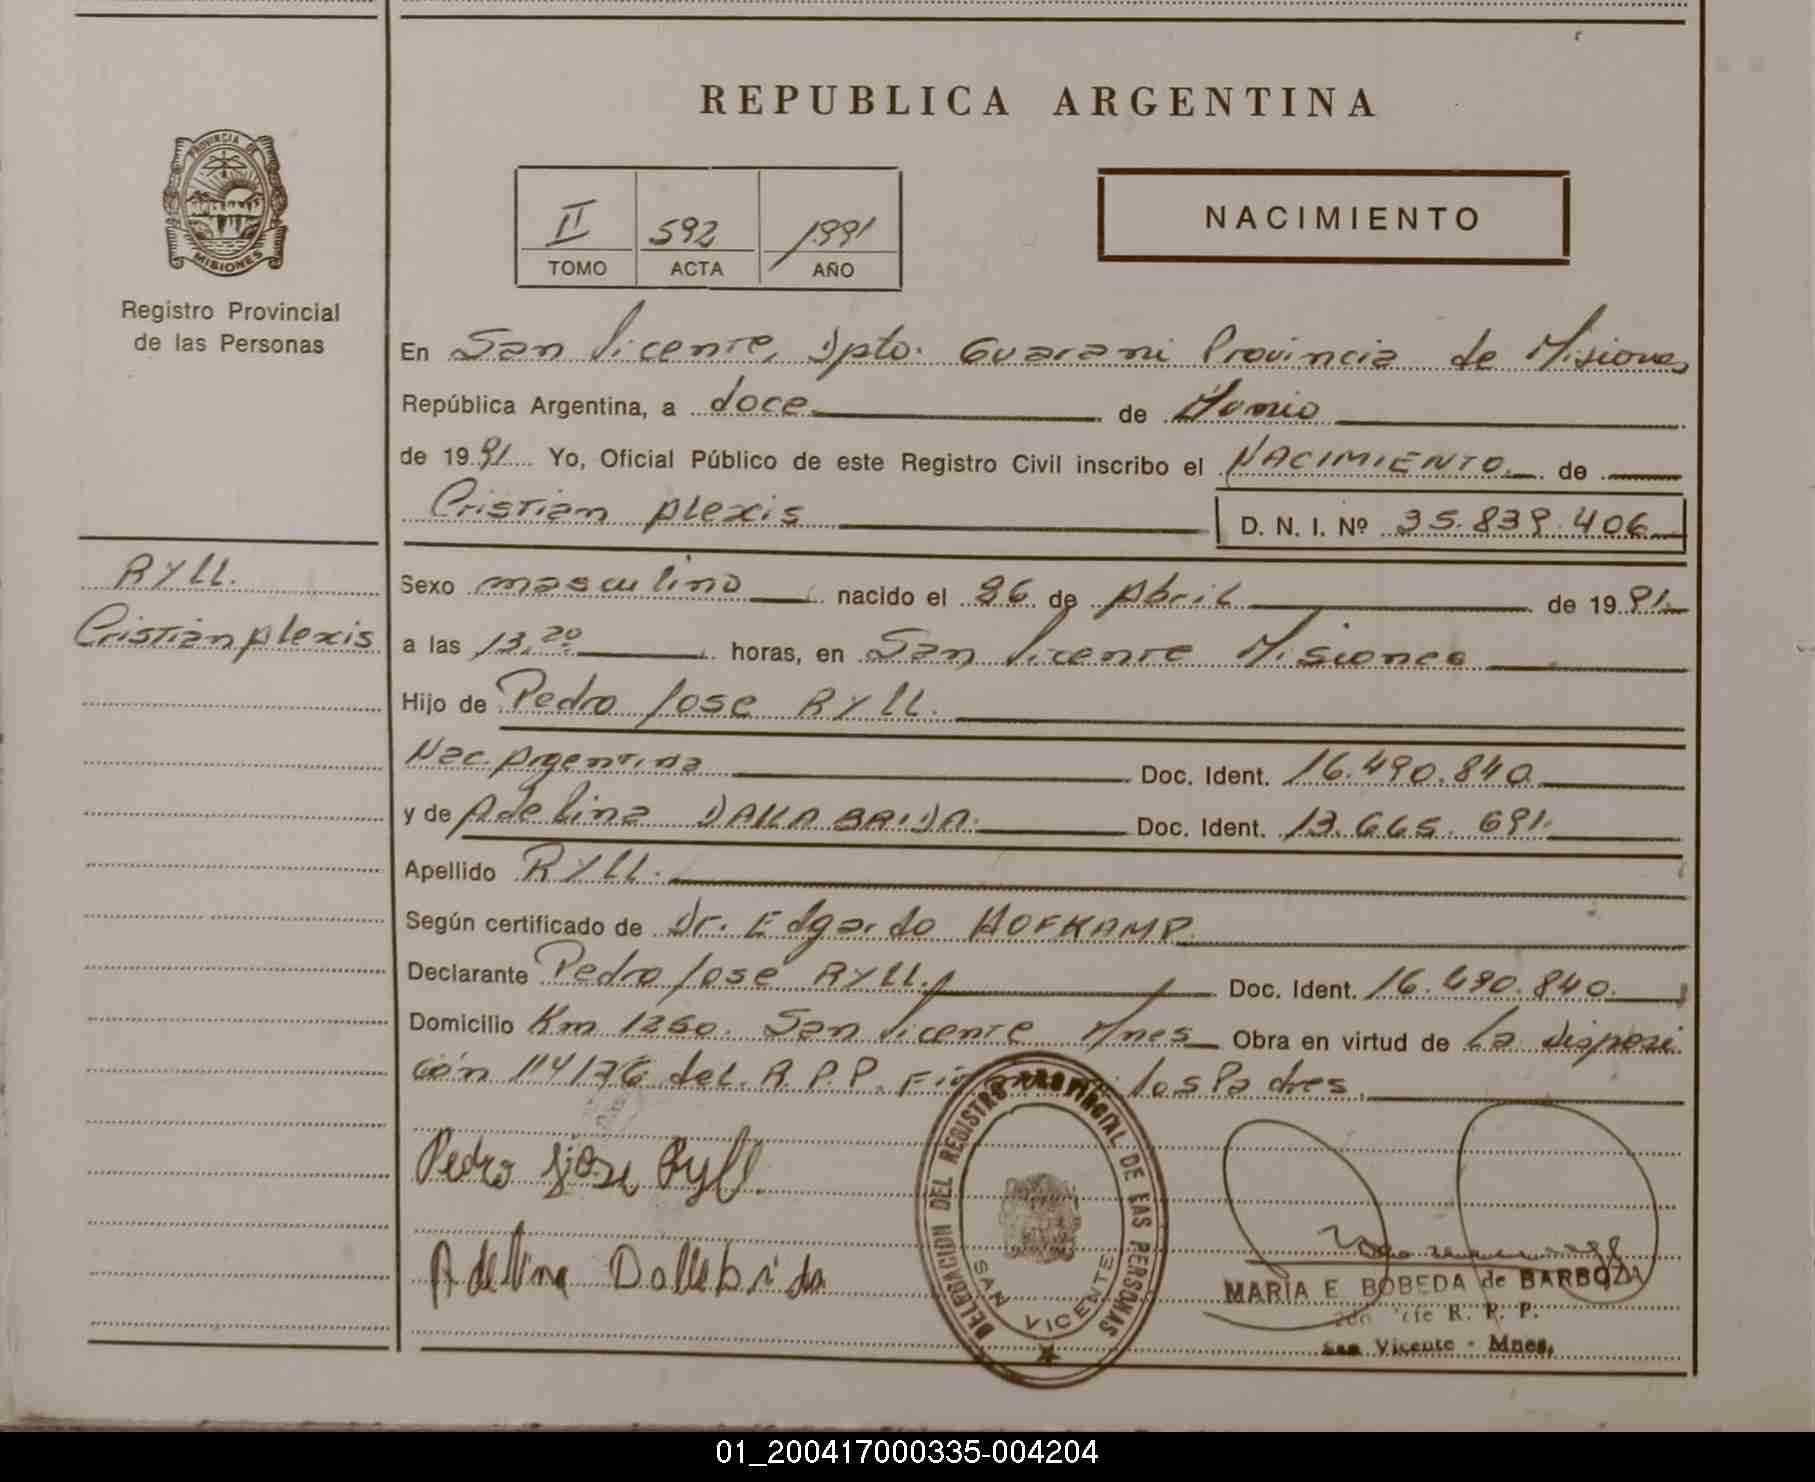 REPUBLICA ARGENTINA
PROVINCIA DE
MISIONES
Registro Provincial
de las Personas
II 592 1991
TOMO ACTA AÑO
NACIMIENTO
En San Vicente, Dpto. Guarani Provincia de Misiones
República Argentina, a doce de Junio
de 1991 Yo, Oficial Público de este Registro Civil inscribo el NACIMIENTO de
Cristian Alexis D. N. I. Nº 35.839.406
RYLL.
Cristian Alexis
Sexo masculino nacido el 26 de Abril de 1991
a las 13,20 horas, en San Vicente Misiones
Hijo de Pedro Jose RYLL.
Nac. Argentina Doc. Ident. 16.490.840
y de Adelina DALLABRIDA. Doc. Ident. 13.665.691
Apellido RYLL.
Según certificado de Dr. Edgardo HOFKAMP.
Declarante Pedro Jose RYLL. Doc. Ident. 16.490.840.
Domicilio Km 1260. San Vicente Mnes Obra en virtud de La Disposi
ción 114/76 del. R.P.P. los Padres.
Pedro Jose Ryll.
Adelina Dallabrida
DELEGACION DEL REGISTRO PROVINCIAL DE LAS PERSONAS
SAN VICENTE
MARIA E. BOBEDA de BARBOZA
R. P. P.
San Vicente - Mnes,
01_200417000335-004204